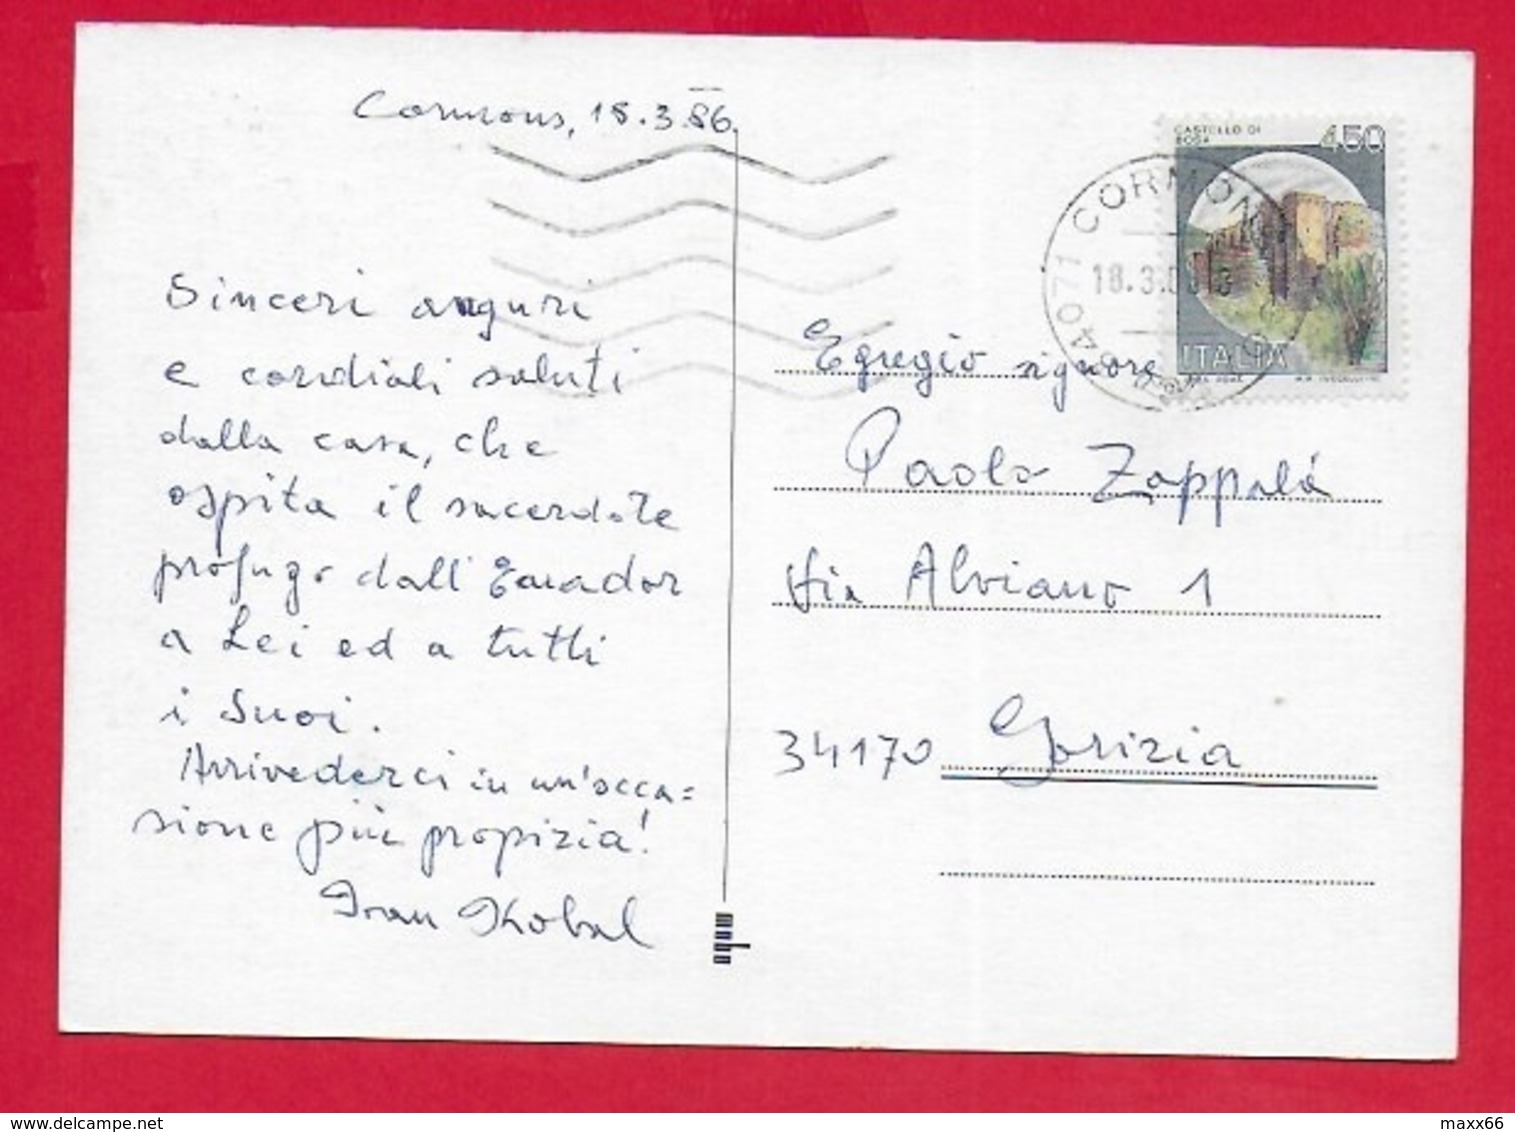 Cormons, 18.3.86.
Sinceri auguri
e cordiali saluti
dalla casa, che
ospita il sacerdote
profugo dall'Ecuador
a Lei ed a tutti
i Suoi.
Arrivederci in un'occa=
sione più propizia!
Ivan Kobal
mabo
CASTELLO DI
BOSA
450
ITALIA
34071 CORMON
18.3.
Egregio signore
Paolo Zappalá
Via Alviano 1
34170 Gorizia
delcampe.net
maxx66